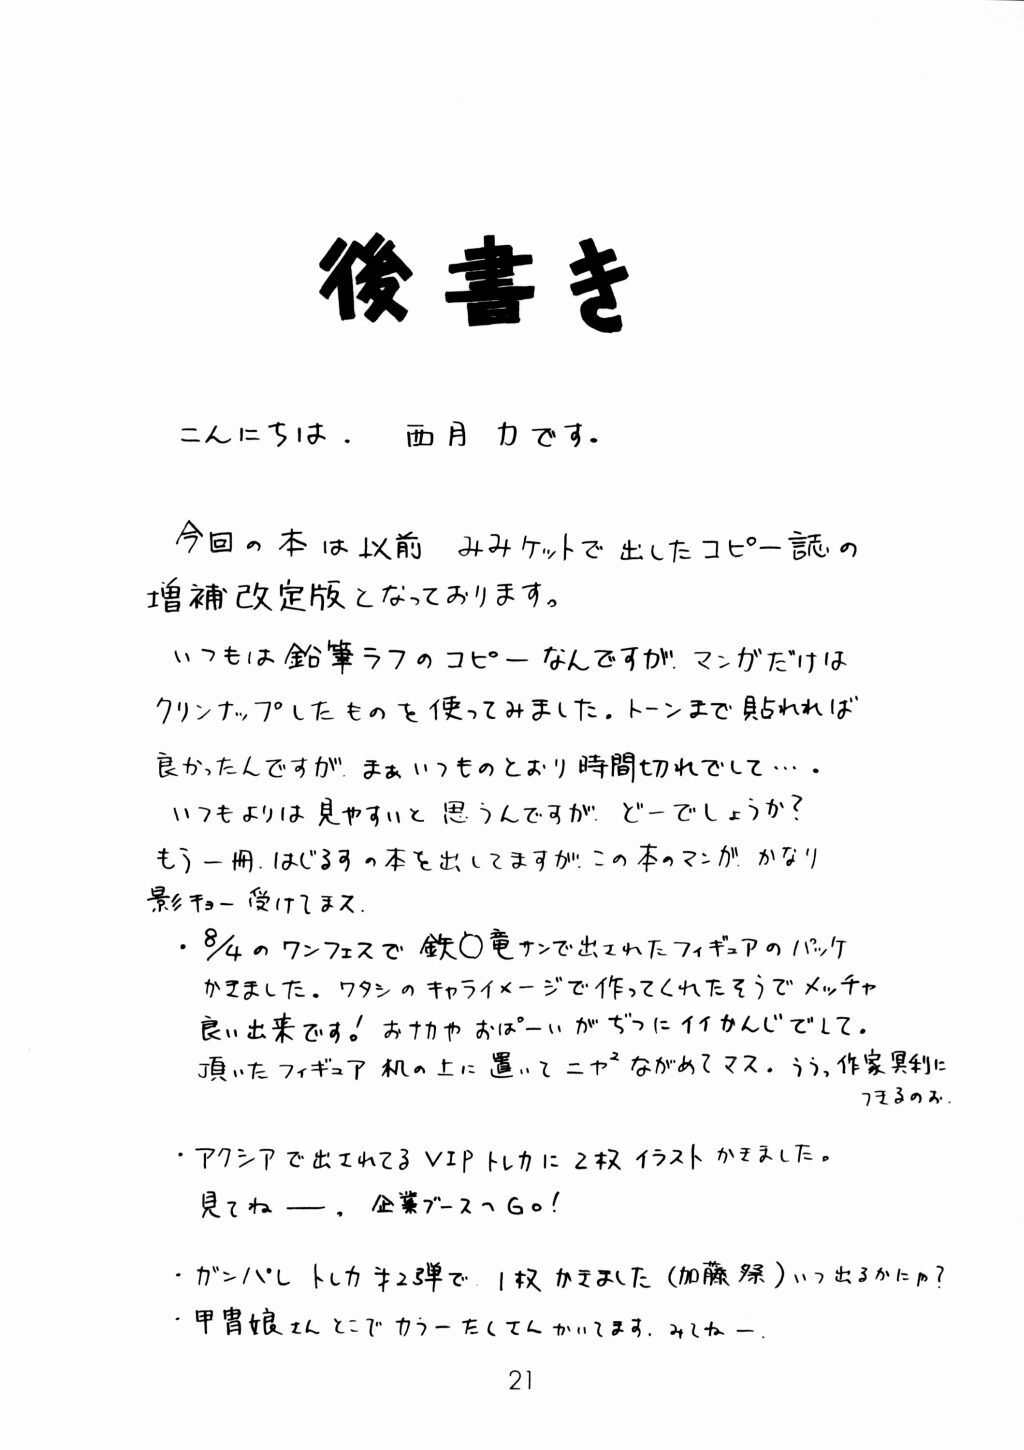 後書き
こんにちは. 西月 力です。
今回の本は以前 みみケットで出したコピー誌の
増補改定版となっております。
いつもは鉛筆ラフのコピーなんですが、マンガだけは
クリンナップしたものを使ってみました。トーンまで貼れれば
良かったんですが、まぁいつものとおり時間切れでして…．
いつもよりは見やすいと思うんですが、どーでしょうか?
もう一冊、はじるすの本を出してますが、この本のマンガ、かなり
影キョー受けてマス．
・8/4のワンフェスで鉄〇竜サンで出されたフィギュアのパッケ
かきました。ワタシのキャライメージで作ってくれたそうでメッチャ
良い出来です! おナカや おぱーいがぢつにイイかんじでして。
頂いたフィギュア 机の上に置いてニヤ²ながめてマス。ううっ作家冥利に
つきるのお.
・アクシアで出されてるVIPトレカに2枚イラストかきました。
見てねー. 企業ブースへGo!
・ガンパレ トレカ 才2弾で、1枚かきました(加藤祭)いつ出るかにゅ?
・甲冑娘さんとこでカラーたくさんかいてます、みてねー.
21